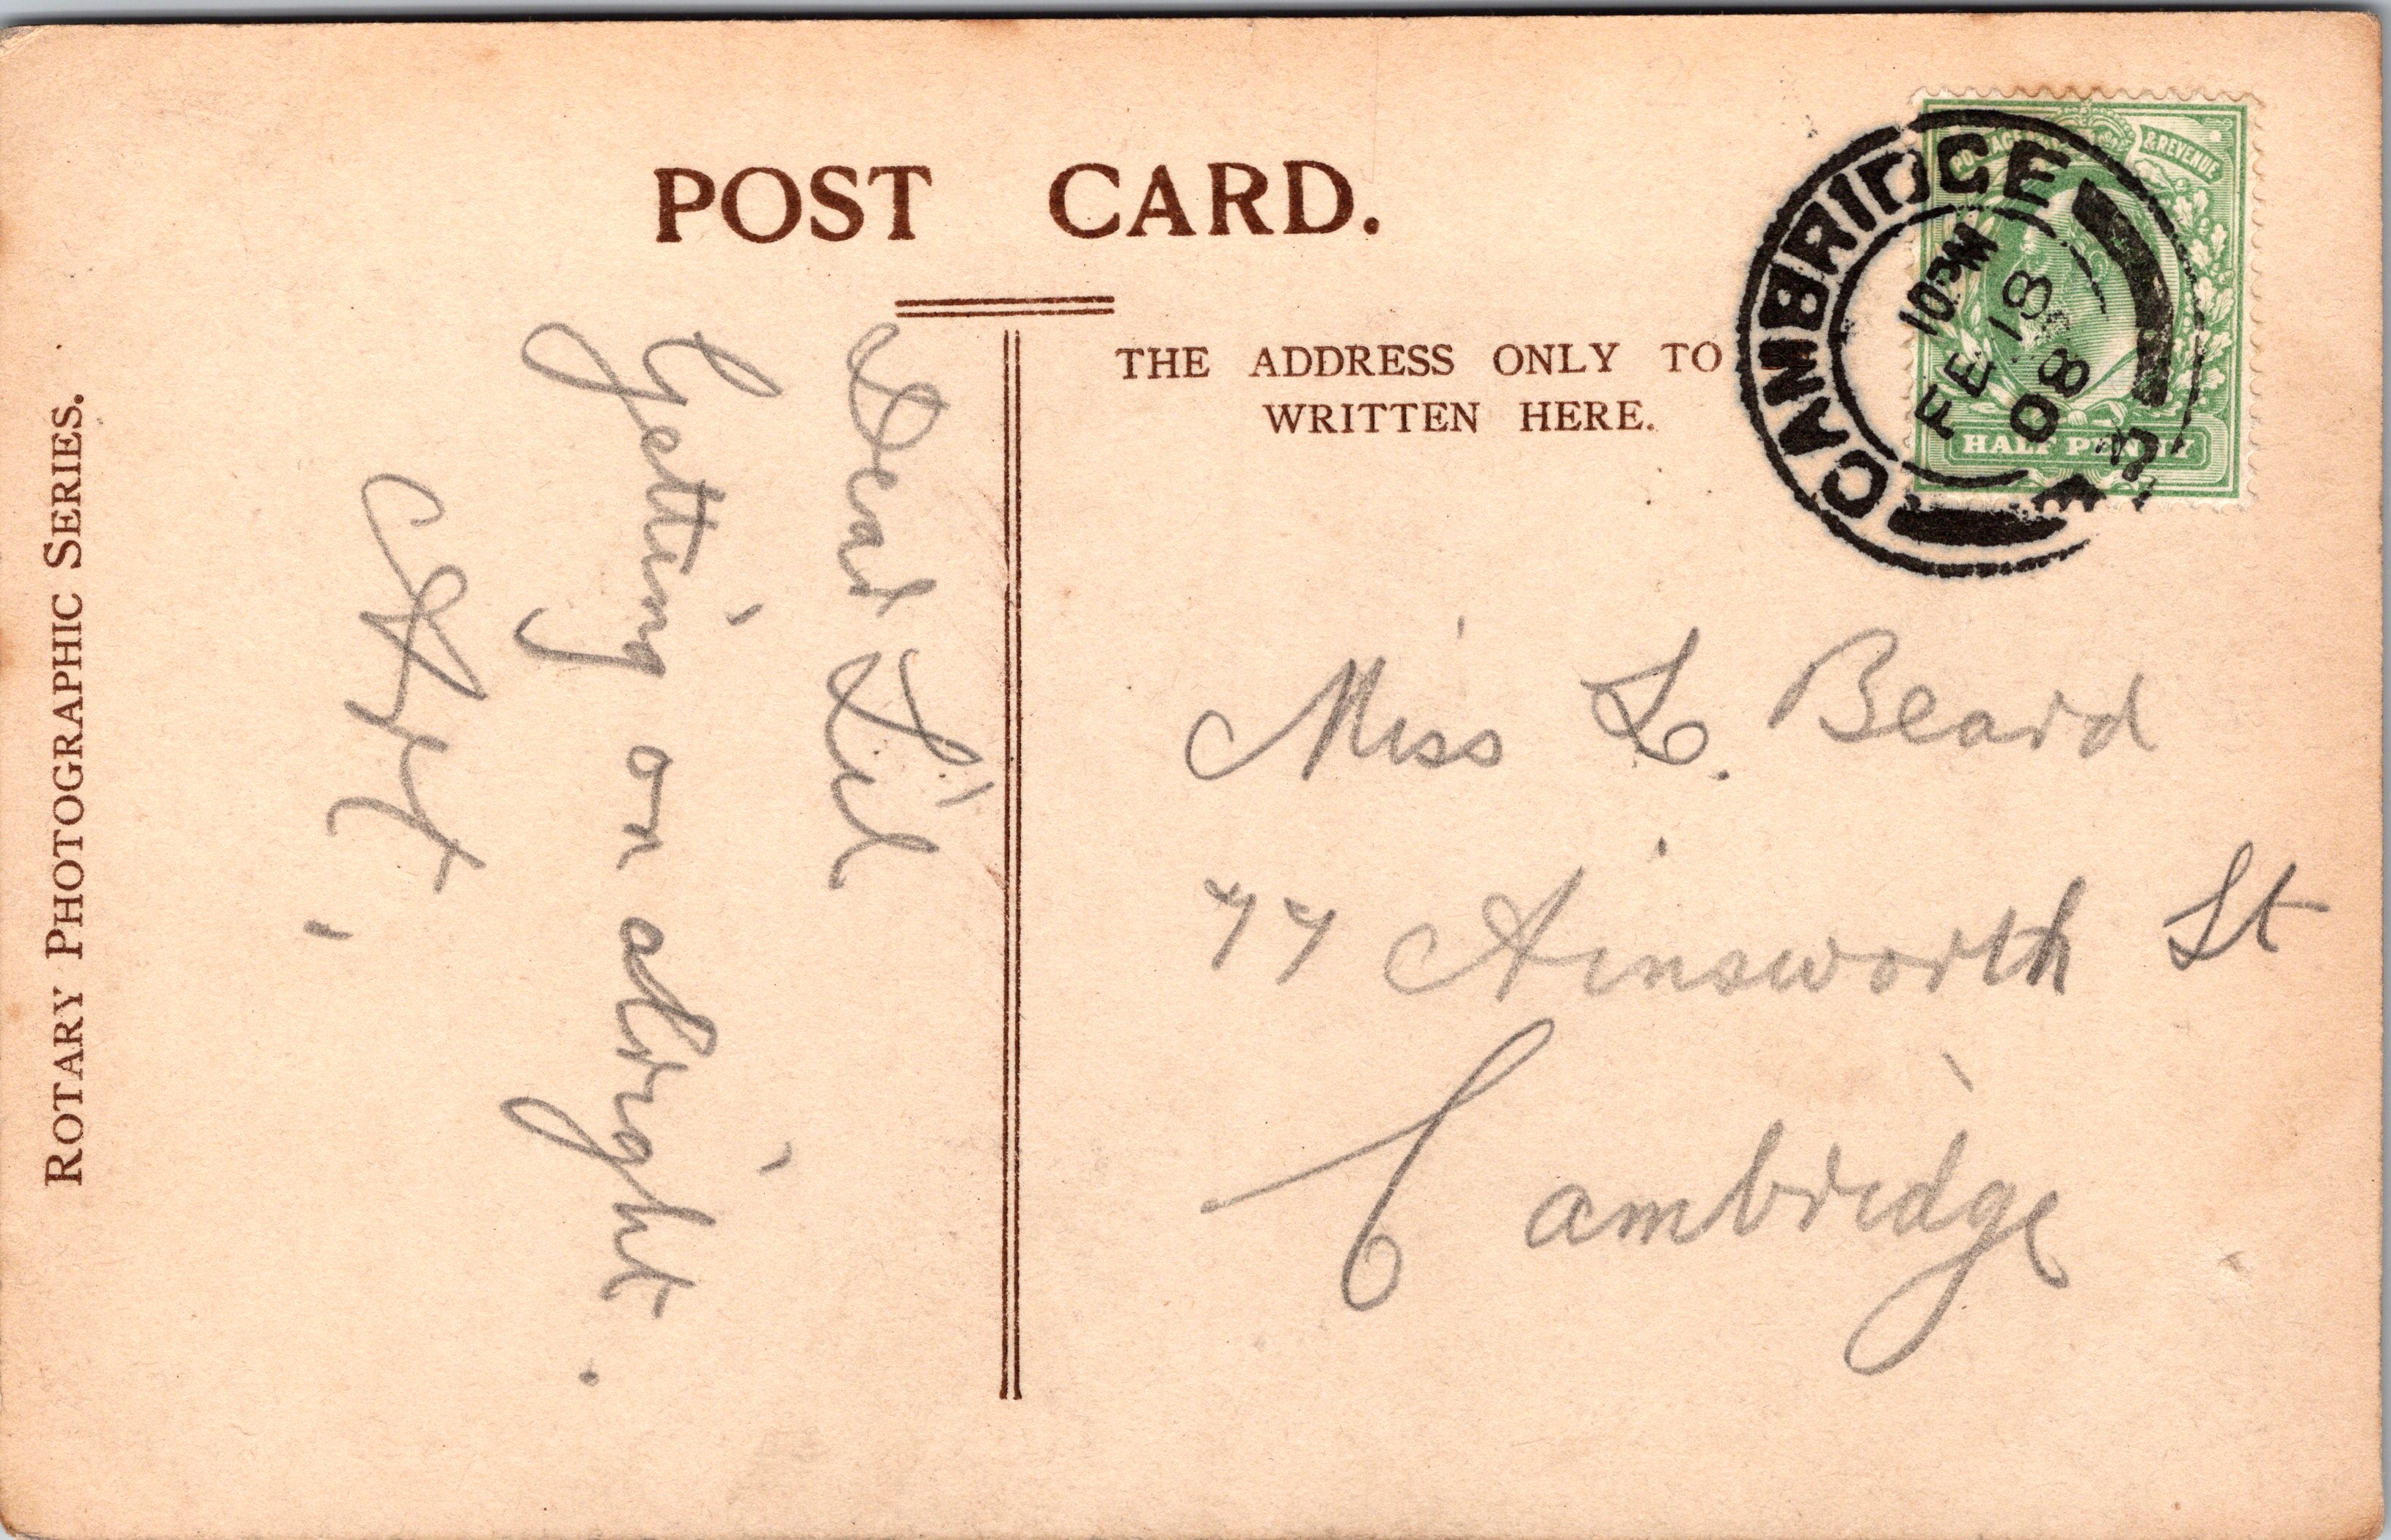 POST CARD.
THE ADDRESS ONLY TO
WRITTEN HERE.
ROTARY PHOTOGRAPHIC SERIES.
CAMBRIDGE
10PM
FE 18
08
POSTAGE & REVENUE
HALF PENNY
Dear Lil
Getting on alright.
Art.
Miss L. Beard
77 Ainsworth St
Cambridge